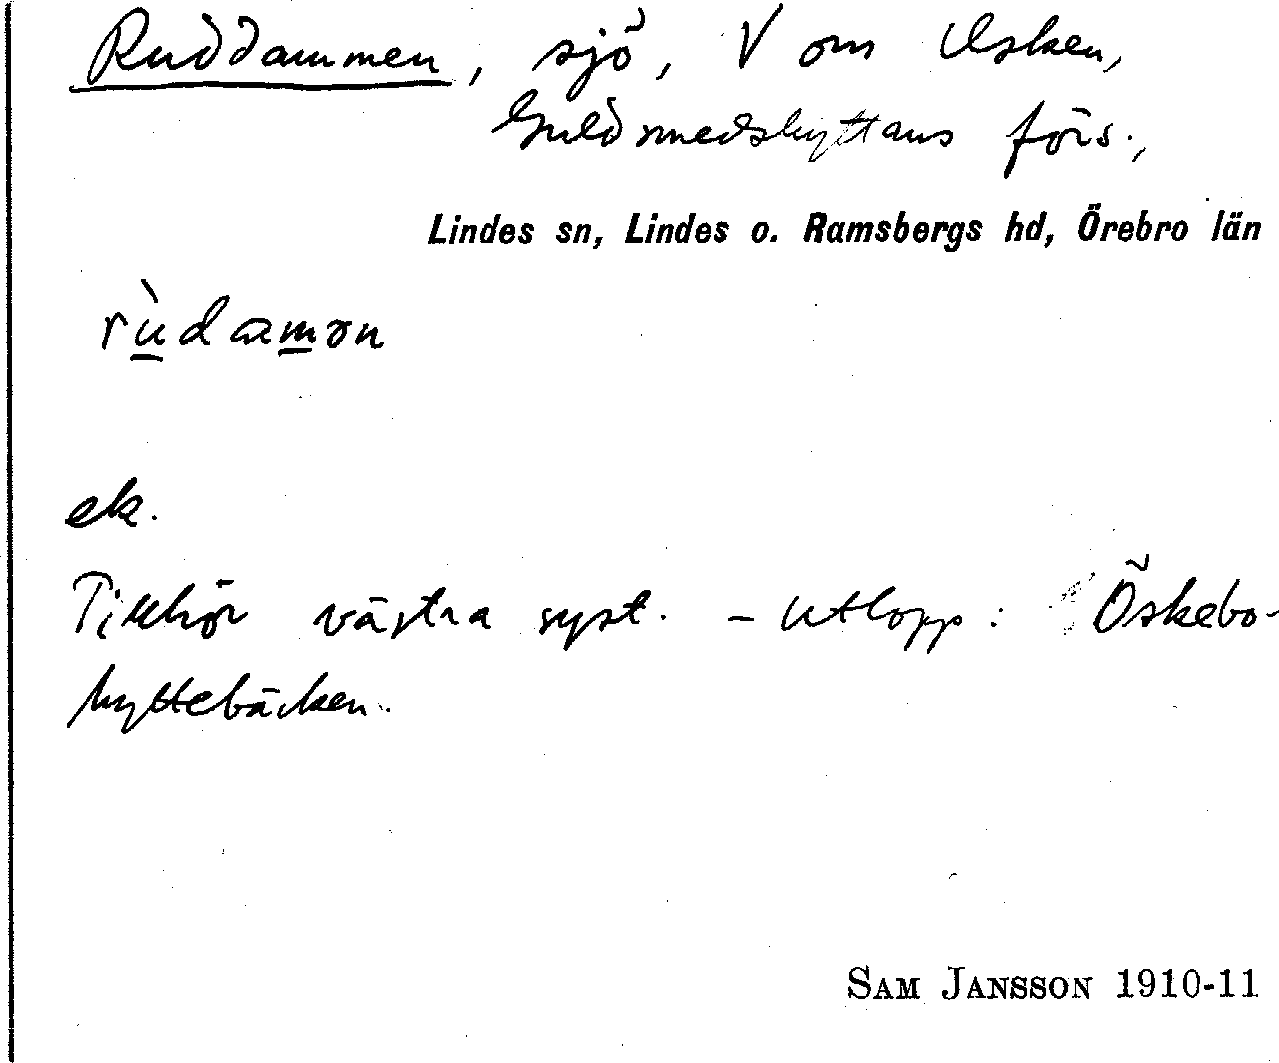 Ruddammen, sjö, V om Usken,
Guldsmedshyttans förs.,
Lindes sn, Lindes o. Ramsbergs hd, Örebro län
rùdamən
ek.
Tillhör västra syst. – Utlopp: Öskebo-
hyttebäcken.
SAM JANSSON 1910-11